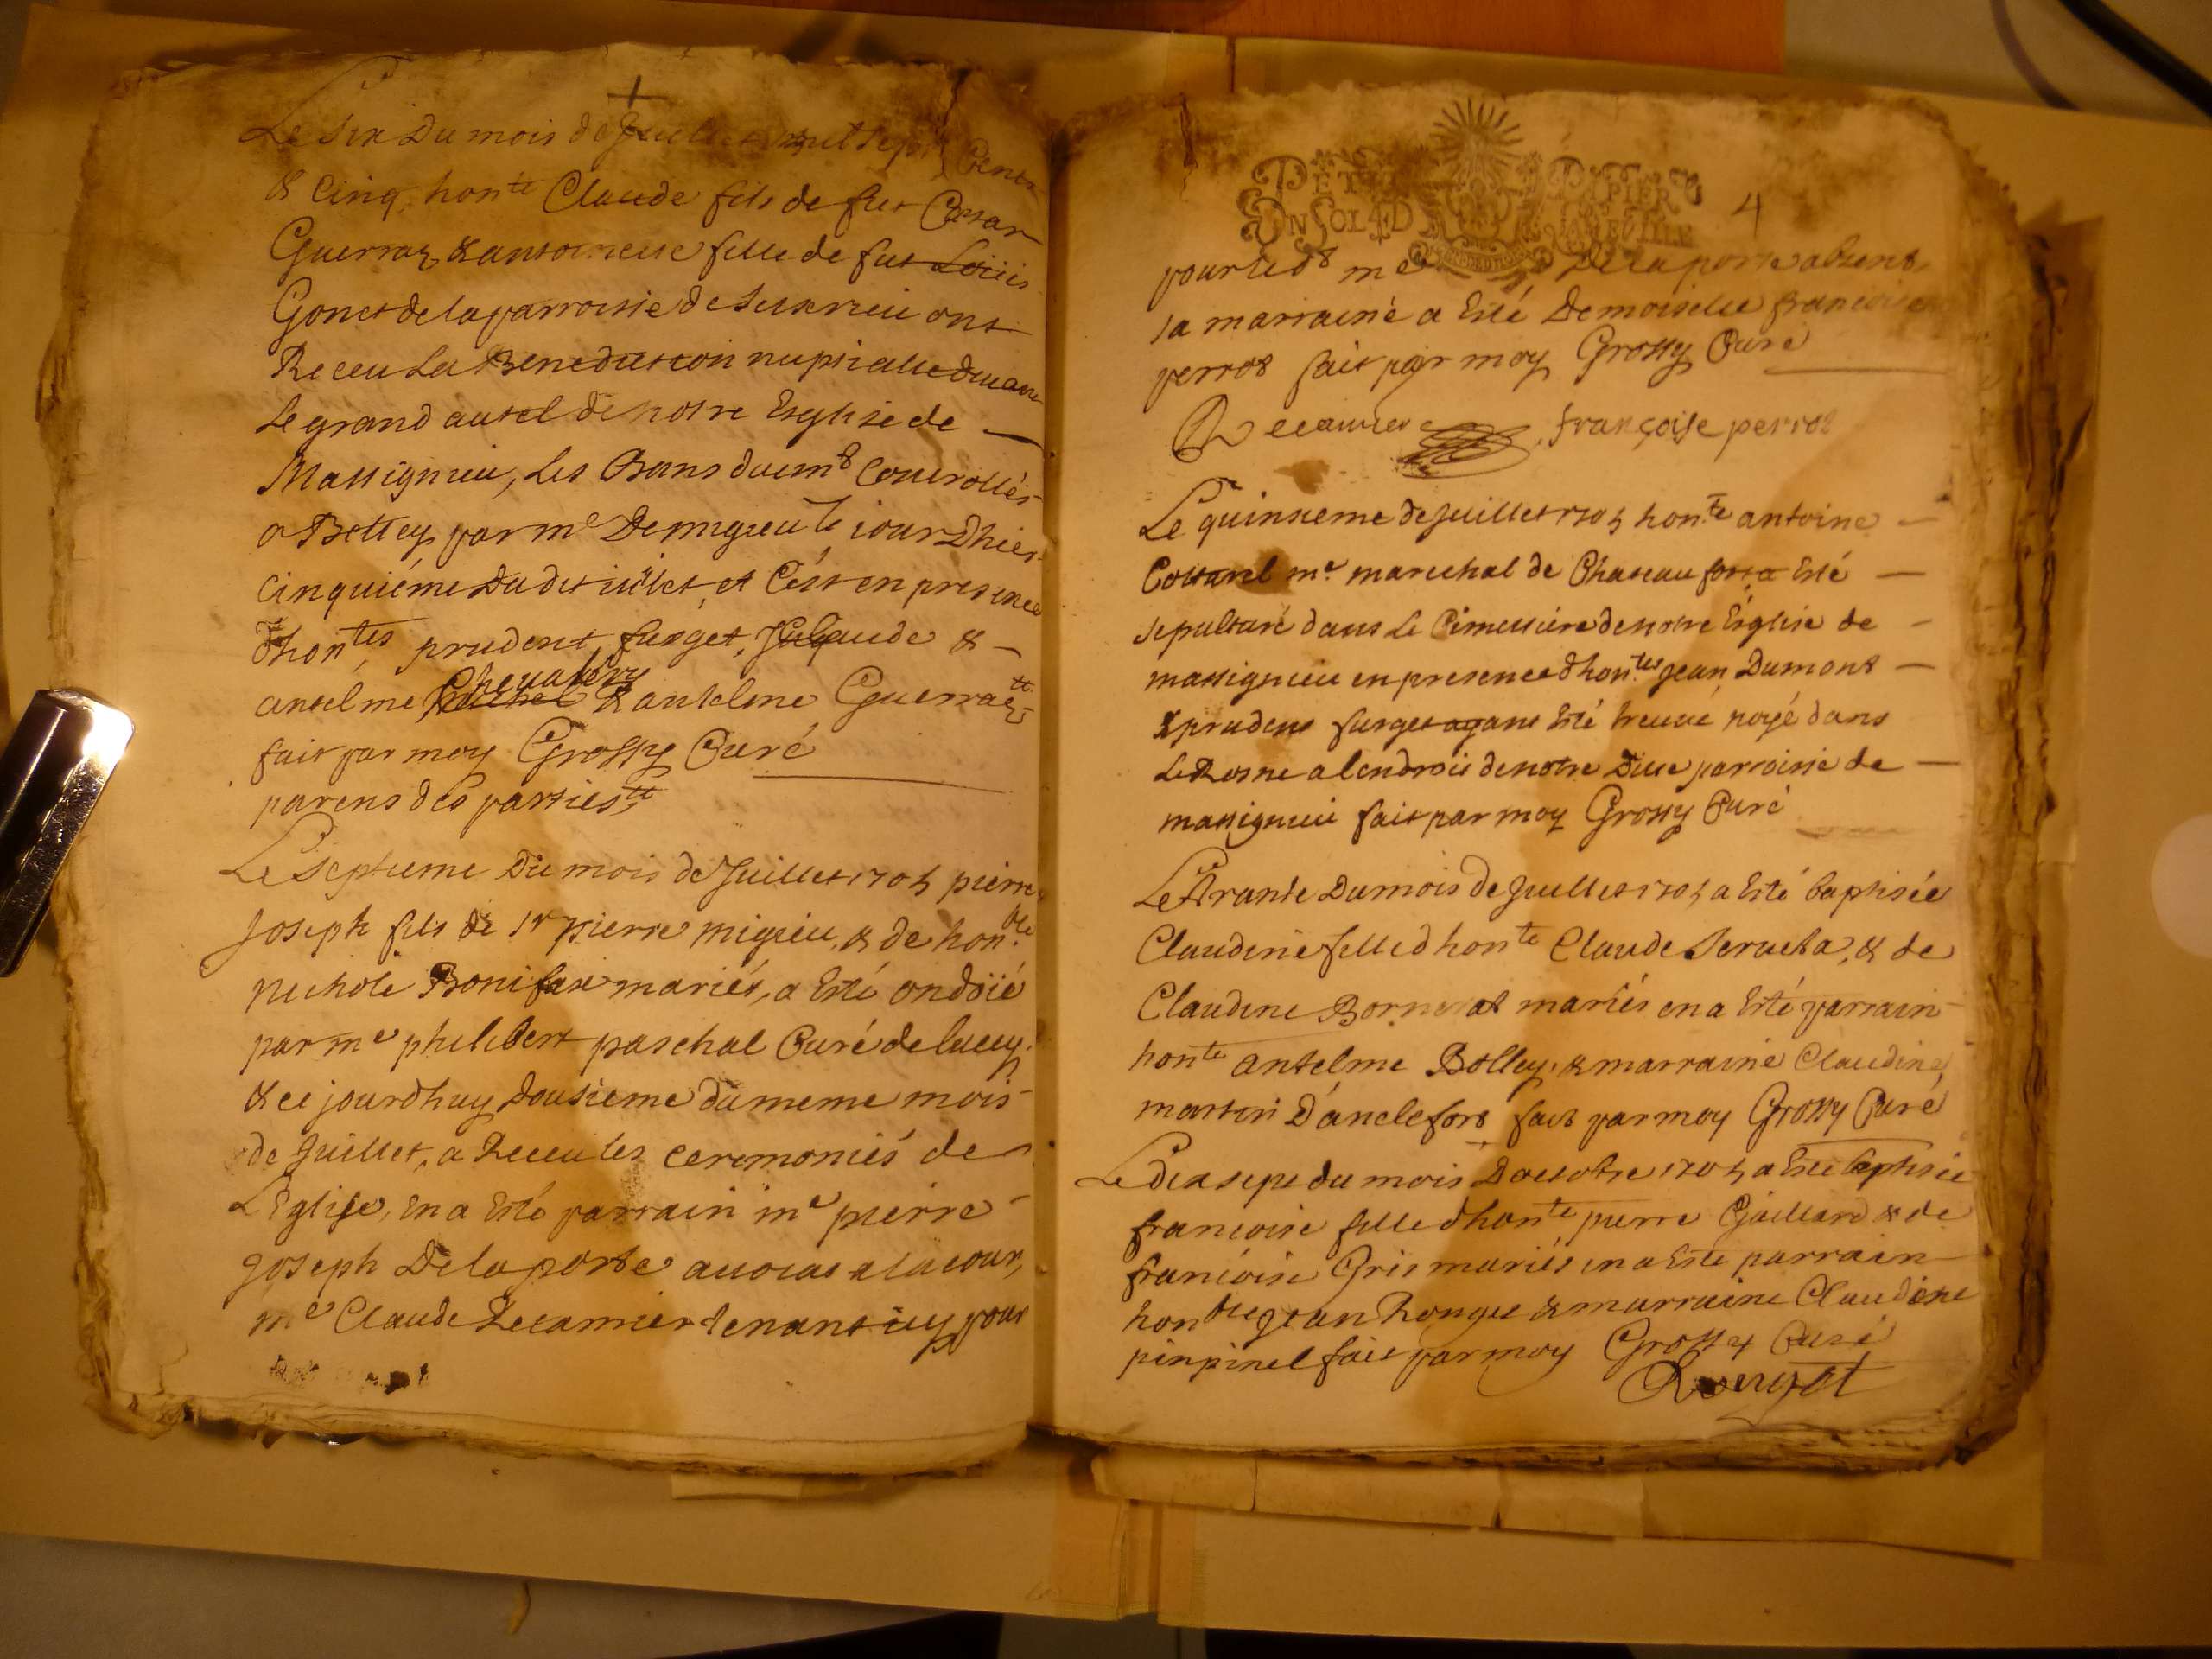 Le Six Du mois de Juillet mil Sept Cents
& Cinq, hon.te Claude fils de fut Cesar
Guerraz & antoinette fille de fut Loüis
Gonet de la parroisse de Serrieu ont
Receu La Benediction nuptialle devant
Le grand autel de notre Esglise de —
Massignieu, Les Bans duem.t Controllés
a Belley par m.e Demigieu le iour Dhier
Cinquiéme Du dit iüillet, et C'est en presence
d'hon.tes prudent furget, Claude & —
antelme Chevalier & antelme Guerraz
fait par moy Grossy Curé
parens des parties
Le Septieme Du mois de Juillet 1705 pierre
Joseph fils de S.r pierre migieu, & de hon.ble
nichole Boniface mariés, a Esté ondoié
par m.e philibert paschal Curé de lucey,
& ce jourdhuy dousieme du meme mois
de Juillet, a Receu les ceremonies de
L'Eglise, En a Esté parrain m.e pierre
Joseph Delaporte avocat a la cour,
m.e Claude Recamier tenant icy pour
PETIT PAPIER
UN SOL 4 D LA FEUILLE
4
pour led.t m.e Delaporte absent,
sa marraine a Esté Demoiselle francoise
perrot fait par moy Grossy Curé
Recamier françoise perrot
Le quinsieme de Juillet 1705 hon.te antoine —
Cottarel m.e marechal de Chateau fort a Esté —
sepulturé dans Le Cimetiere de notre Eglise de —
massignieu en presence d'hon.tes Jean Dumont —
& prudent furget ayant Esté treuvé noyé dans
Le Rosne a lendroit de notre Ditte parroisse de —
massignieu fait par moy Grossy Curé
Le Trante Du mois de Juillet 1705 a Esté baptisée
Claudine fille d'hon.te Claude & de
Claudine mariés en a Esté parrain
hon.te antelme Bolley, & marraine Claudine
martin D'anclefort fait par moy Grossy Curé
Le dix sept du mois Doctobre 1705 a Esté baptisée
francoise fille d'hon.te pierre Gaillard & de
francoise Gris mariés en a Esté parrain
hon.ble Jean Rouget & marraine Claudine
pinpinel fait par moy Grossy Curé